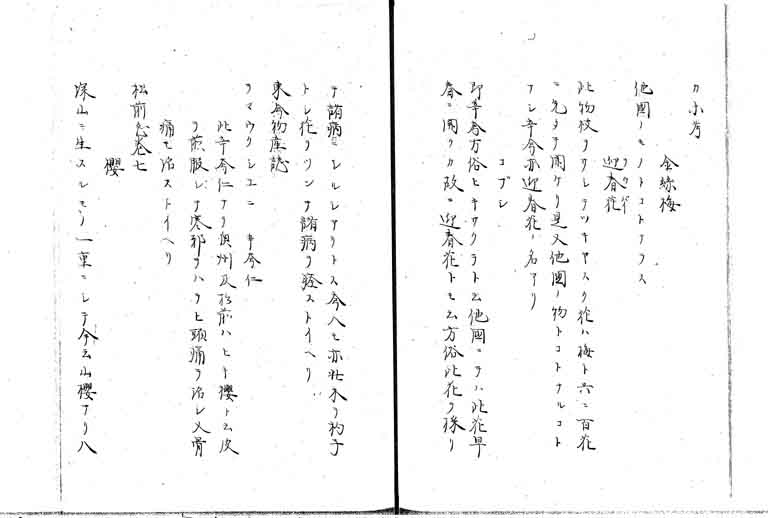 カ不考
金縷梅
他國ノモノトコトナラス
迎春花
此物枝ヲワカレテツキヤスク花ハ梅ト共ニ百花
ニ先タチ開ケリ是又他國ノ物トコトナルコト
ナシ辛夷亦迎春花ノ名アリ
コブシ
即辛夷方俗ヒキサクラト云他國ニテハ此花早
春ニ開ク力故ニ迎春花トモ云方俗此花ヲ採リ
テ諸病ニシルシアリトス今人モ亦此木ヲ杓子
トシ花ヲツンテ諸病ヲ轻ストイヘリ
東夷物産誌
ヲマウクシユニ 辛夷仁
此辛夷仁ナリ奥州及松前ハヒキ櫻ト云皮
ヲ煎服シテ寒邪ヲハラヒ頭痛ヲ治シ又骨
痛モ治ストイヘリ
松前志卷七
櫻
深山ニ生スルモノ一葉ニシテ今云山櫻ナリ八